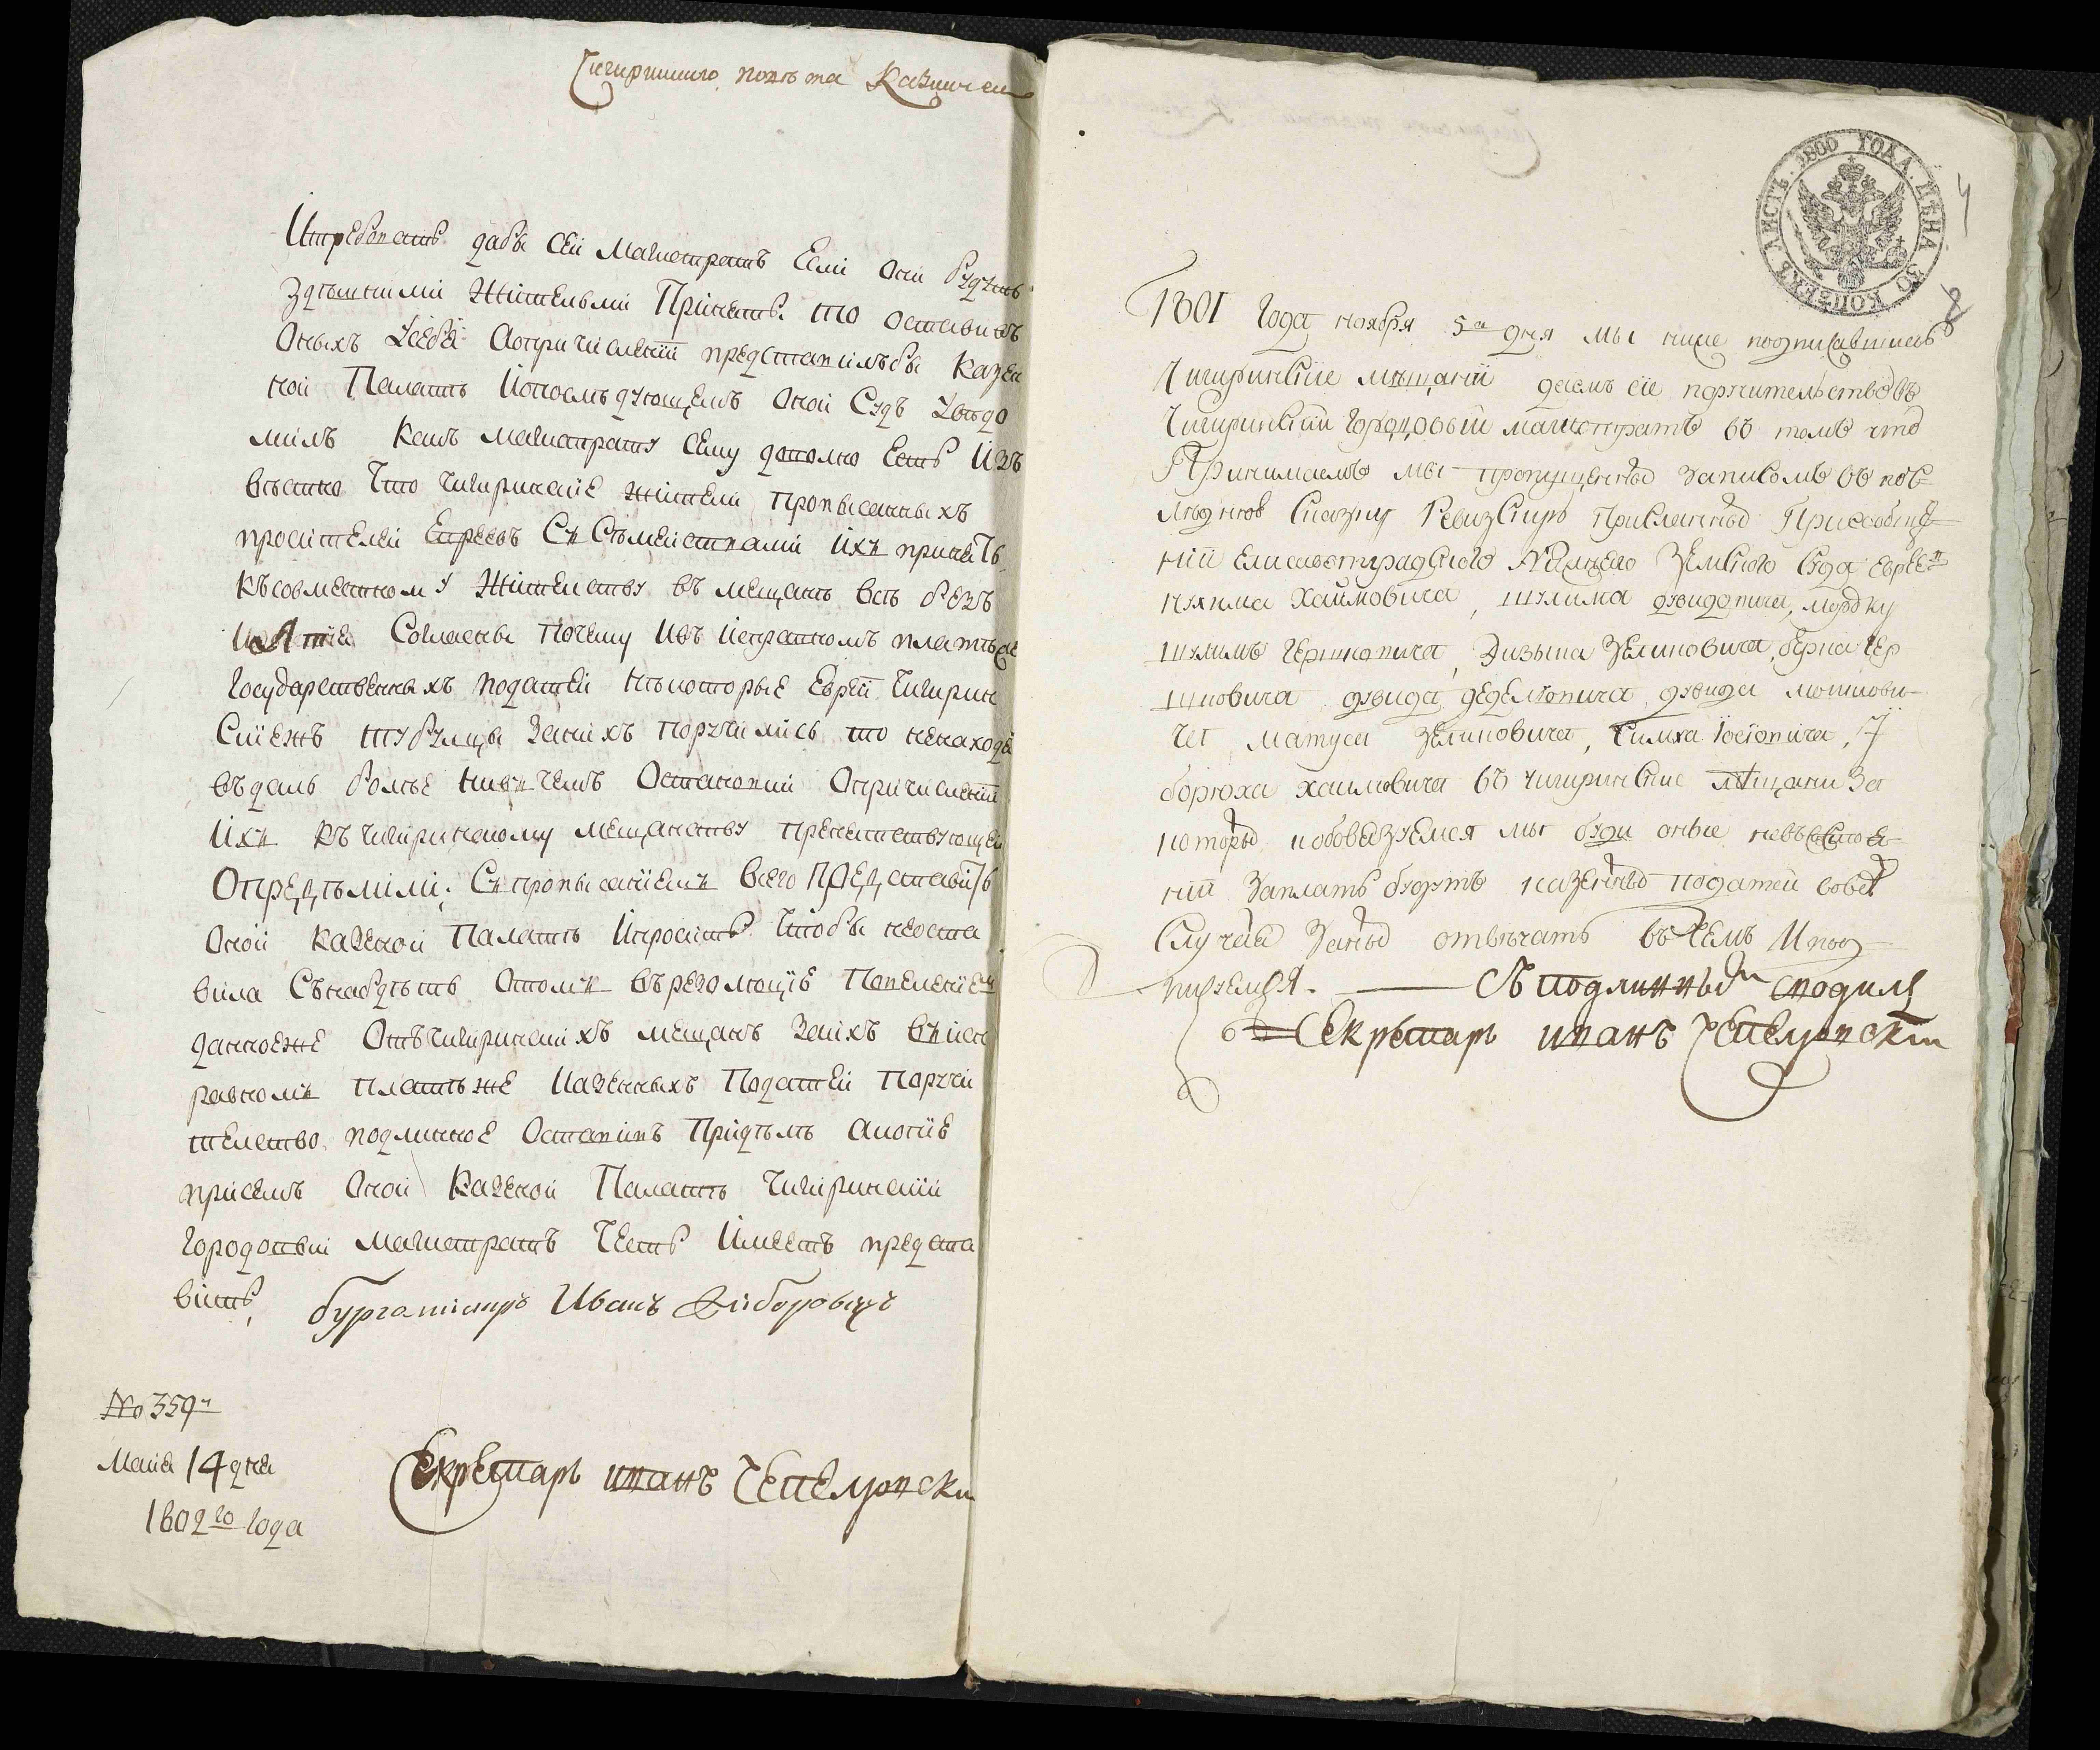 Чигиринского повѣта Казначей
Итребовать дабы Сей Магистратъ Если Они будутъ
Здѣшними Жителми Приняты. то оставитъ
Оныхъ Усебя Аопричисленіи представилъбы Казен
ной Палатѣ Йопослѣдующемъ Оной Судъ Увѣдо
милъ Какъ Магистрату Сему доволно Есть Изъ
вѣстно Что Чигиринские жители Прописанныхъ
просителей Евреевъ Съ Съмействами Ихъ принять
Късовместному Жителству въ мещанъ Всѣ безъ
Согласны Почему Ивъ Исправномъ платѣже
Государственныхъ Податей Нѣкоторые Евреи Чигирин
Скиежъ Заныхъ Поручились то ненаходя
въдаль болѣе Нивъчемъ Остановки Опричисленіи
Ихъ Къ Чигиринскому мещанству Препятствующей
Опредѣлили: Съпрописаніемъ Всего Представить
Оной Казеной Палатѣ Ипросить Чтобы неоста
вила Сънабдѣть Отомъ въ резолюцiе Повеленіемъ
данноеже Отъ Чигиринскихъ мещанъ Заихъ Въисп
равномъ Платѣже Казенныхъ Податей Поручи
телство подлинное Оставивъ Придѣлѣ Акопіе
присемъ Оной Казеной Палатѣ Чигиринскій
Городовый Магистратъ Честь Имеетъ предста
вить,
бургамистръ Иванъ
No 359й
Майя 14 дня
1802го Года
Секретарь иванъ Чепелювски
1800 ГОДА. ЦѢНА 30 КОПѢЕКЪ ЛИСТЪ.
4
2
1801 Года ноября 5го дня мы ниже подписавшиесь
Чигиринские мѣщани даемъ сіе поручительство въ
Чигиринскій городовый магистратъ въ томъ что
Принимаемъ мы пропущенныхъ Записомъ въ пос
лѣднюю Сказку Ревизскую Присланныхъ Присообще
ніи Елисаветградского Нижнего Земского Суда Евреевъ
нухима Хаимовича, шулима дувидовича, мордку
шулимъ Гершковича, Зизыма Зелиновича, берка Гер
шковича дувида дувида мошкови
ча матуса Зелиновича, Симха Іосіовича, И
борюха хаимовича въ чигиринские мѣщани За
которыхъ иобовязуемся мы буди оныe несъстоя
ніи Заплатѣ будутъ казенныхъ податей Совсѣхъ
Случаяхъ Заныхъ отвѣчать въ Чемъ Ипод
писуемся. Съ подлиннымъ сводилъ
Секретарь иванъ Чепелювскій